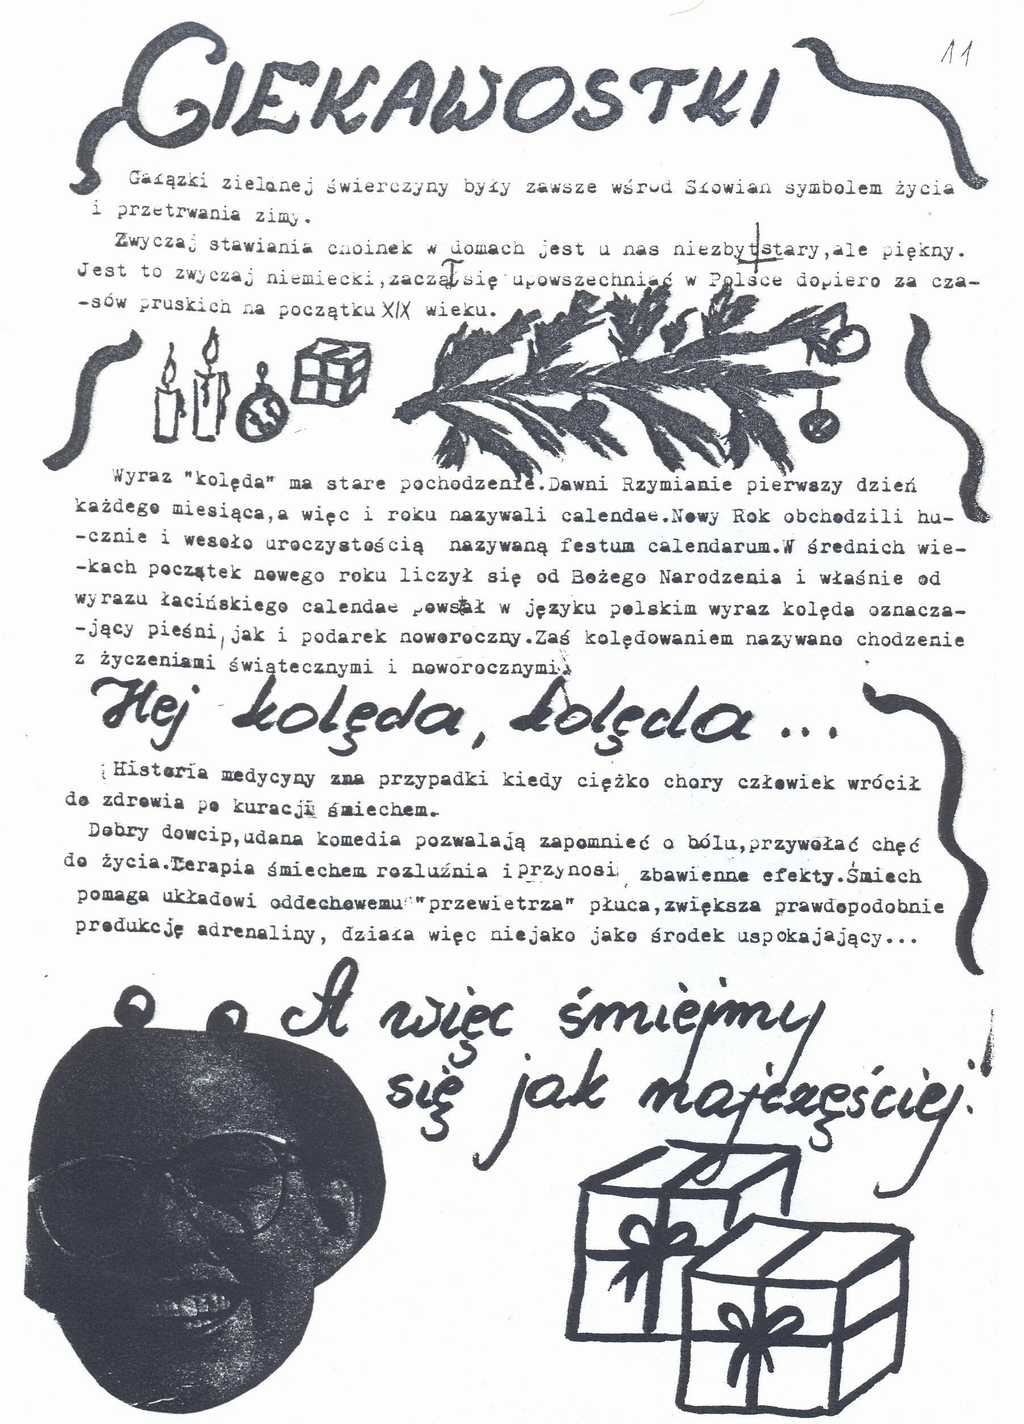 11
CIEKAWOSTKI
Gałązki zielonej świerczyny były zawsze wśród Słowian symbolem życia
i przetrwania zimy.
Zwyczaj stawiania choinek w domach jest u nas niezbyt stary,ale piękny.
Jest to zwyczaj niemiecki,zaczął się upowszechniać w Polsce dopiero za cza-
-sów pruskich na początku XIX wieku.
Wyraz "kolęda" ma stare pochodzenie.Dawni Rzymianie pierwszy dzień
każdego miesiąca,a więc i roku nazywali calendae.Nowy Rok obchodzili hu-
-cznie i wesoło uroczystością nazywaną festum calendarum.W średnich wie-
-kach początek nowego roku liczył się od Bożego Narodzenia i właśnie od
wyrazu łacińskiego calendae powstał w języku polskim wyraz kolęda oznacza-
-jący pieśni,jak i podarek noworoczny.Zaś kolędowaniem nazywano chodzenie
z życzeniami świątecznymi i noworocznymi.
Hej kolęda, kolęda...
Historia medycyny zna przypadki kiedy ciężko chory człowiek wrócił
do zdrowia po kuracji śmiechem.
Dobry dowcip,udana komedia pozwalają zapomnieć o bólu,przywołać chęć
do życia.Terapia śmiechem rozluźnia i przynosi zbawienne efekty.Śmiech
pomaga układowi oddechowemu "przewietrza" płuca,zwiększa prawdopodobnie
produkcję adrenaliny, działa więc niejako jako środek uspokajający...
A więc śmiejmy
się jak najczęściej!